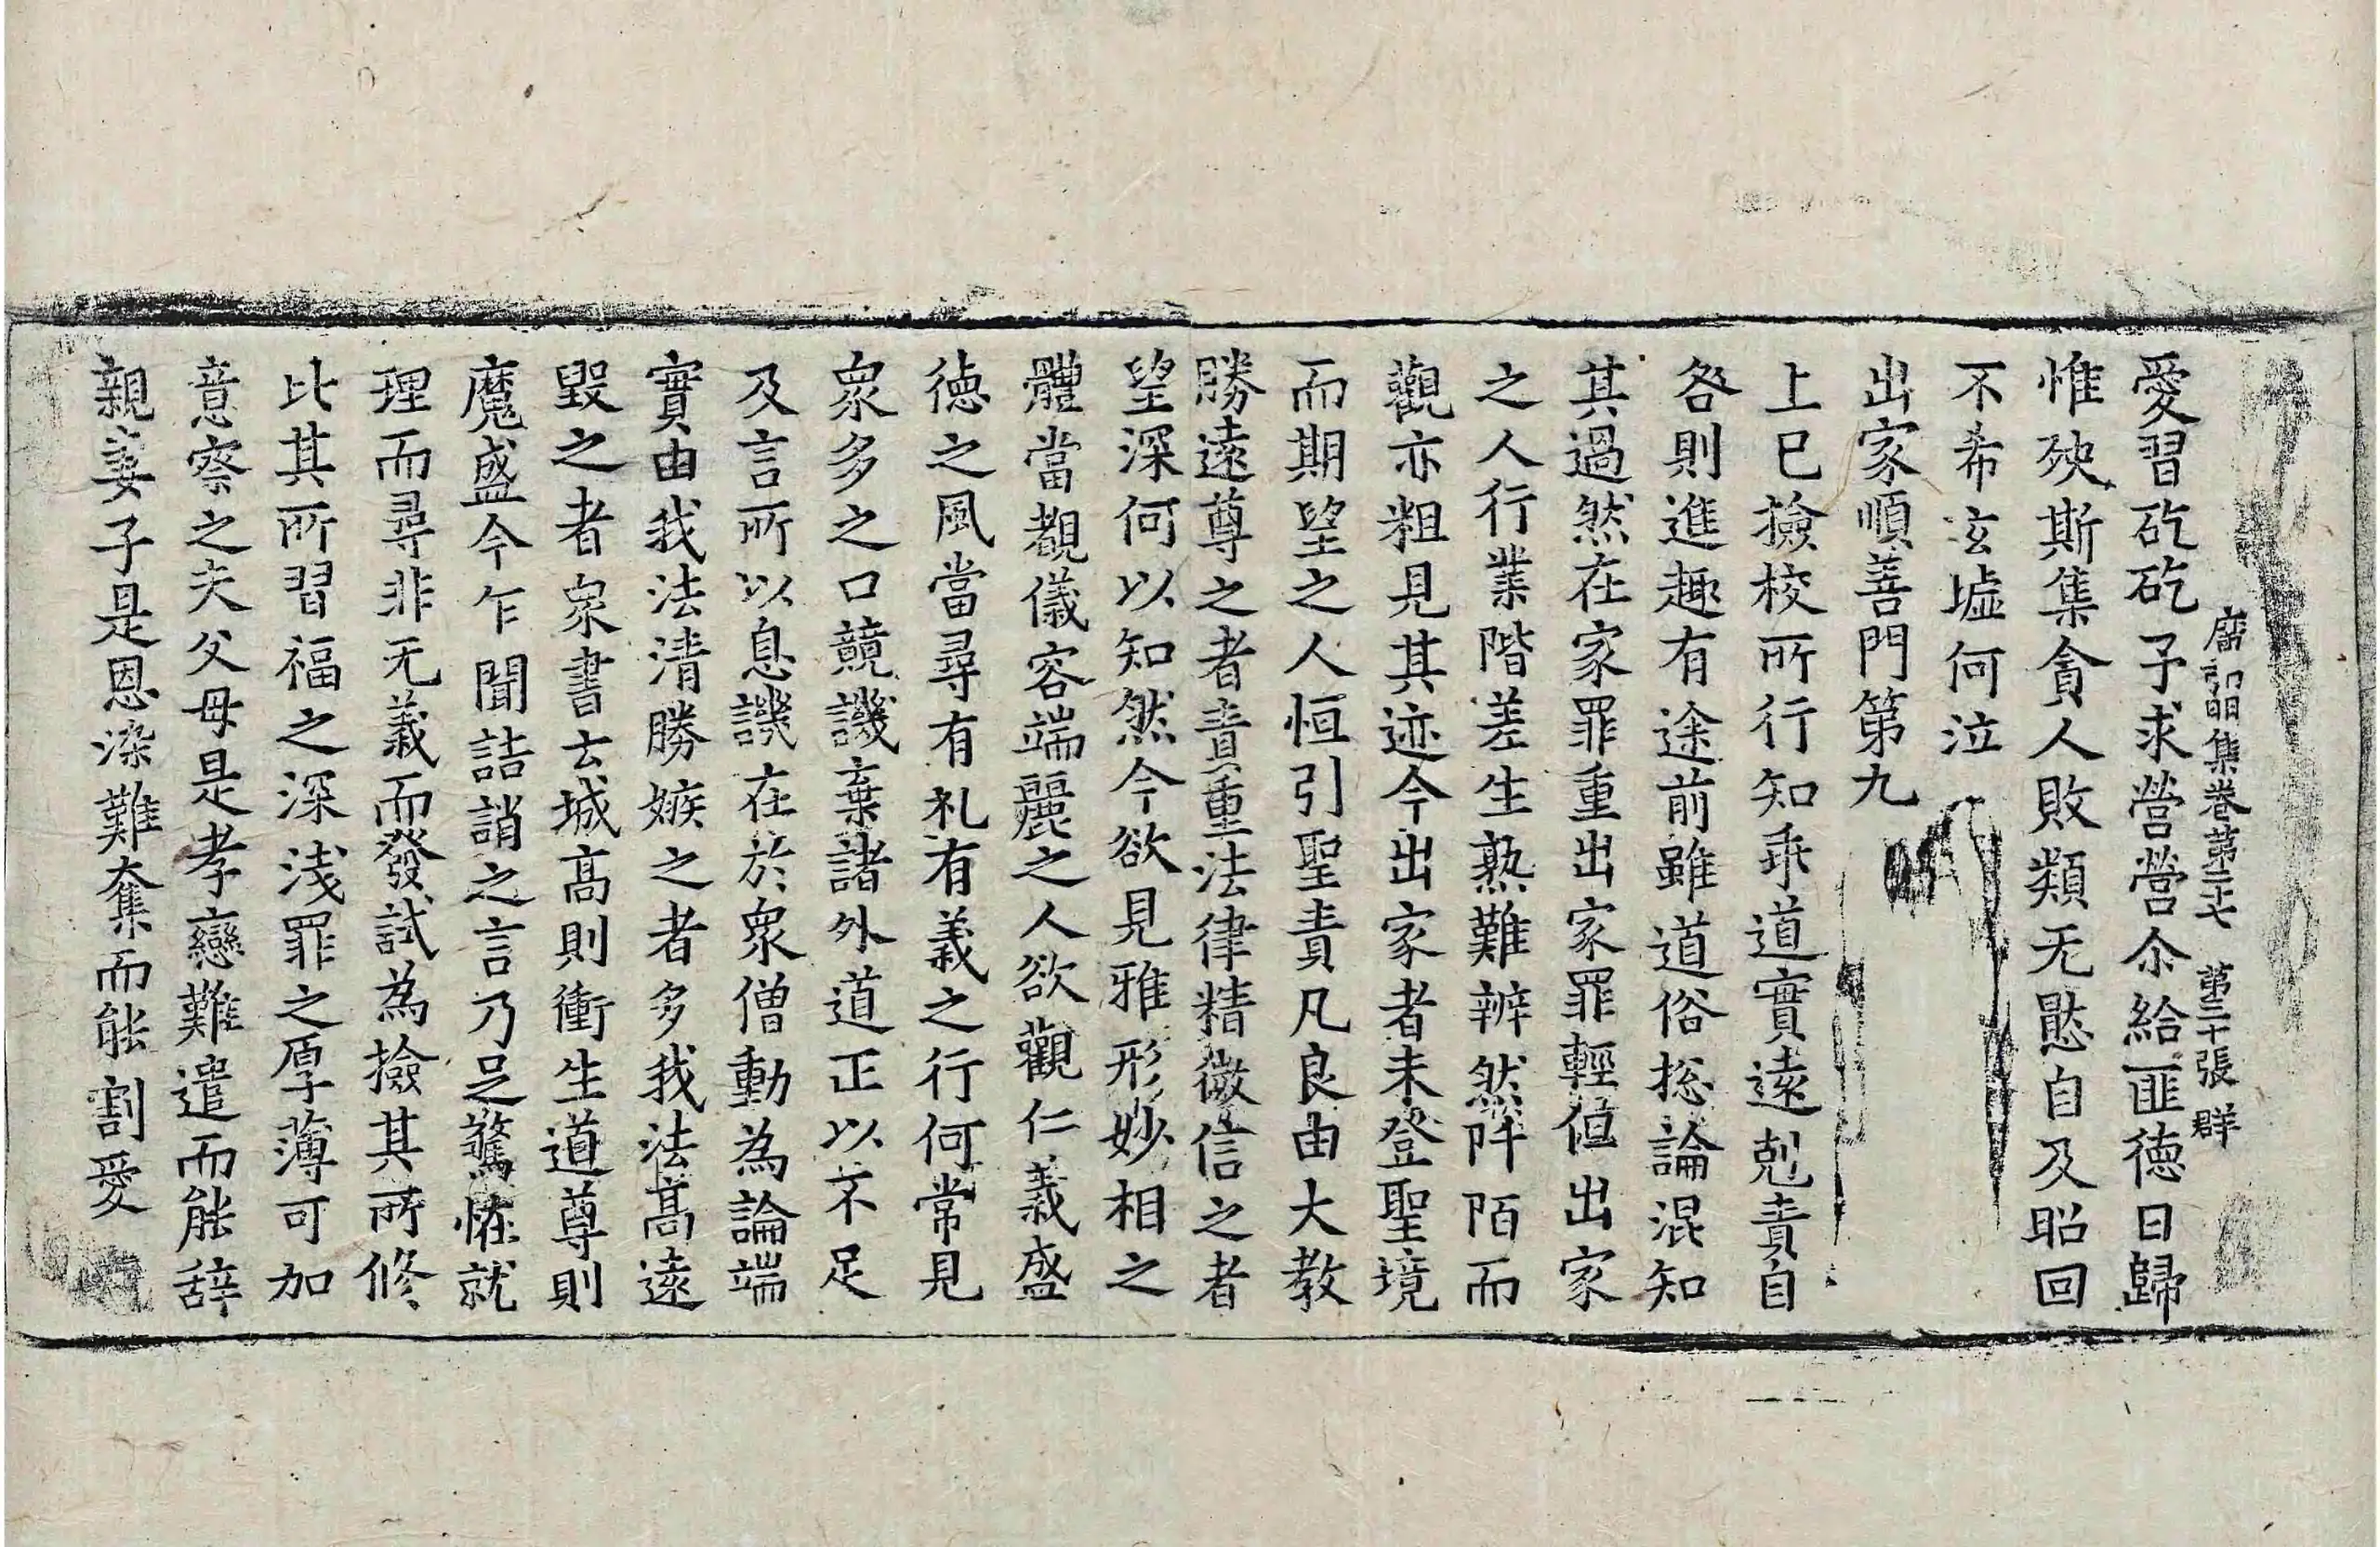 愛習矻矻子求營營尒給匪德日歸
廣弘明集卷第二十七　第三十張　群
惟殃斯集貪人敗類无愍自及昭回
不希玄墟何泣
出家順善門第九
上已撿校所行知乖道實遠剋責自
咎則進趣有途前雖道俗捴論混知
其過然在家罪重出家罪輕但出家
之人行業階差生熟難辨然阡陌而
觀亦粗見其迹今出家者未登聖境
而期望之人恒引聖責凡良由大教
勝遠尊之者責重法律精微信之者
望深何以知然今欲見雅形妙相之
體當觀儀容端麗之人欲觀仁義盛
德之風當尋有礼有義之行何常見
衆多之口競譏棄諸外道正以不足
及言所以息譏在於衆僧動為論端
實由我法清勝嫉之者多我法高遠
毀之者衆書云城高則衝生道尊則
魔盛今乍聞詰誚之言乃足驚恠就
理而尋非无義而發試為撿其所修
比其所習福之深淺罪之厚薄可加
意察之夫父母是孝戀難遣而能辞
親妻子是恩染難奪而能割愛